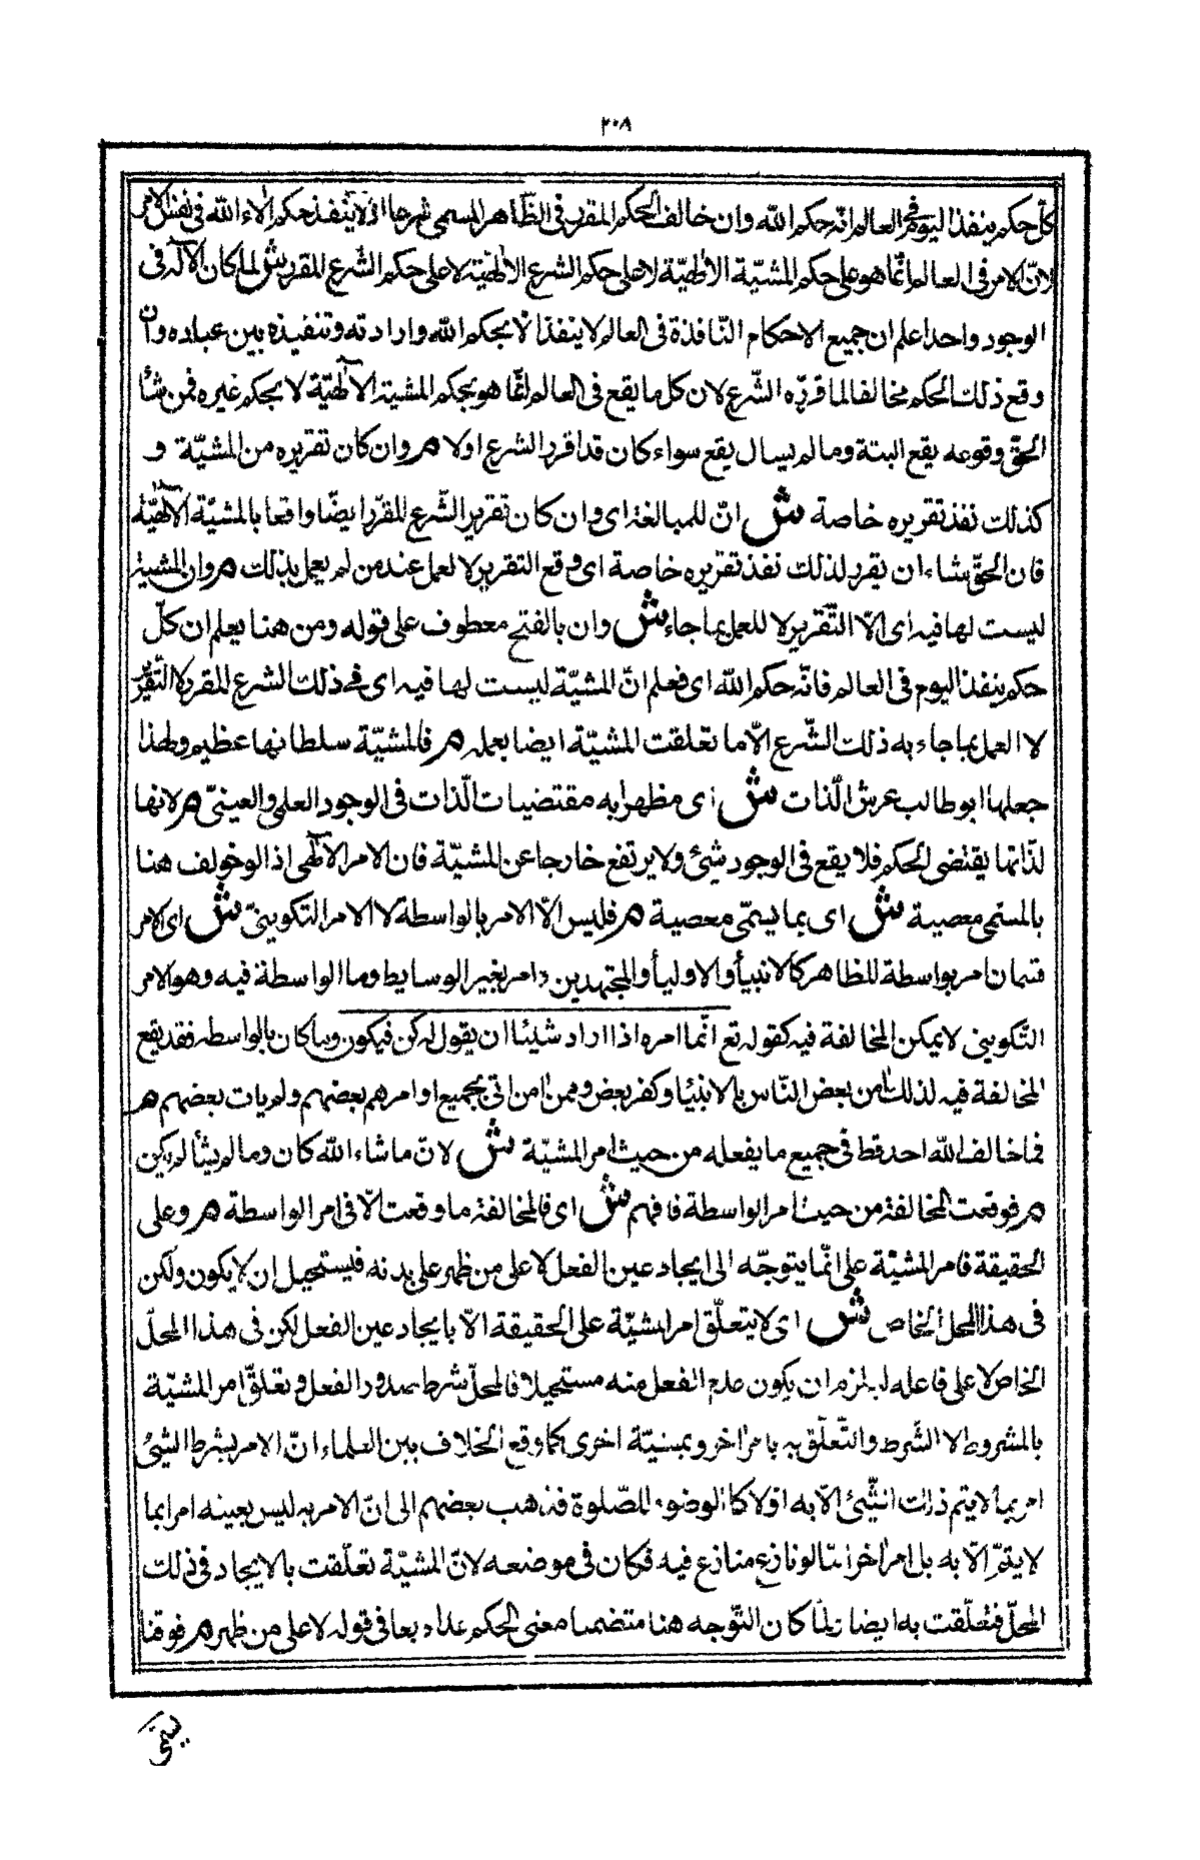 ٢٠٨
كلّ حكم ينفذ اليوم فى العالم انّه حكم اللّه وان خالف الحكم المقرر فى الظّاهر المسمى شرعا اذ لا ينفذ حكم الا للّه فى نفس الامر
لانّ الامر فى العالم انّما هو على حكم المشيّة الالهيّة لا على حكم الشرع الالهية لا على حكم الشّرع المقرر ش لما كان الاله فى
الوجود واحدا علم ان جميع الاحكام النّافذة فى العالم لا ينفذ الا بحكم اللّه وارادته وتنفيذه بين عباده وان
وقع ذلك الحكم مخالفا لما قرّره الشّرع لان كل ما يقع فى العالم انّما هو بحكم المشية الالهيّة لا بحكم غيره فمن شأ
الحقّ وقوعه يقع البتة وما لم يسال يقع سواء كان قد اقرر الشرع اولا م وان كان تقريره من المشيّة و
كذلك نفذ تقريره خاصة ش انّ للمبالغة اى وان كان تقرير الشّرع المقرر ايضًا واقعا بالمشيّة الالهيّة
فان الحقّ شاء ان يقرر لذلك نفذ تقريره خاصة اى وقع التقرير لا لعمل عند من لم يعمل بذلك م وان المشية
ليست لها فيه اى الّا التّقرير لا للعمل بما جاء ش وان بالفتح معطوف على قوله ومن هنا يعلم ان كلّ
حكم ينفذ اليوم فى العالم فانّه حكم اللّه اى فعلم انّ المشيّة ليست لها فيه اى فى ذلك الشرع المقرر الا التّقرير
لا العمل بما جاء به ذلك الشّرع الّا ما تعلقت المشيّة ايضا بعمله م فالمشيّة سلطانها عظيم ولهذا
جعلها ابو طالب عرش الّذات ش اى مظهرا به مقتضيات الّذات فى الوجود العلمى والعينىّ م لانها
لذّاتها يقتضى الحكم فلا يقع فى الوجود شئ ولا يرتفع خارجا عن المشيّة فان الامر الالهى اذا لو خولف هنا
بالمسمى معصية ش اى بما يسمّى معصية م فليس الّا الامر بالواسطة لا الامر التكوينىّ ش اى الامر
قسمان امر بواسطة للظاهر كالانبيأ والاوليأ والمجتهدين وامر بغير الوسايط وما الواسطة فيه وهو الامر
التّكوينى لا يمكن المخالفة فيه كقوله تع انّما امره اذا اراد شيئا ان يقول له كن فيكون وما كان بالواسطه فقد يقع
المخالفة فيه لذلك امن بعض النّاس بالانبيا وكفر بعض وممن امن اتى بجميع اوامرهم بعضهم ولم يات بعضهم م
فما خالف اللّه احد قط فى جميع ما يفعله من حيث امر المشيّة ش لانّ ما شاء اللّه كان وما لم يشأ لم يكن
م فوقعت المخالفة من حيث امر الواسطة فافهم ش اى فالمخالفة ما وقعت الّا فى امر الواسطة م وعلى
الحقيقة فامر المشيّة على انّما يتوجّه الى ايجاد عين الفعل لا على من ظهر على يدنه فيستحيل ان لا يكون ولكن
فى هذا المحل الخاص ش اى لا يتعلّق امر المشيّة على الحقيقة الّا بايجاد عين الفعل لكن فى هذا المحلّ
الخاص لا على فاعله ليلزم ان يكون عدم الفعل منه مستحيلا فالمحلّ شرط صدور الفعل وتعلّق امر المشيّة
بالمشروط لا الشّرط والتّعلّق به بامر اخر وبمشيّة اخرى كما وقع الخلاف بين العلماء انّ الامر بشرط الشيئ
امر بما لا يتم ذلك الشّئ الّا به اولا كالوضوء للصّلوة فذهب بعضهم الى انّ الامر به ليس بعينه امر ابما
لا يتمّ الّا به بل امر اخر ثنا لو نازع منازع فيه فكان فى موضعه لانّ المشيّة تعلّقت بالايجاد فى ذلك
المحلّ فتعلّقت به ايضا ولمّا كان التّوجه هنا متضمنا معنى الحكم عداه بعلى فى قوله لا على من ظهر م فوقتا
يسمّى